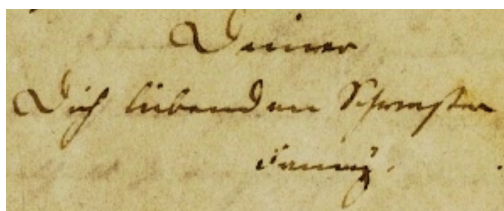 Deiner
Dich liebenden Schwester
Fanny.